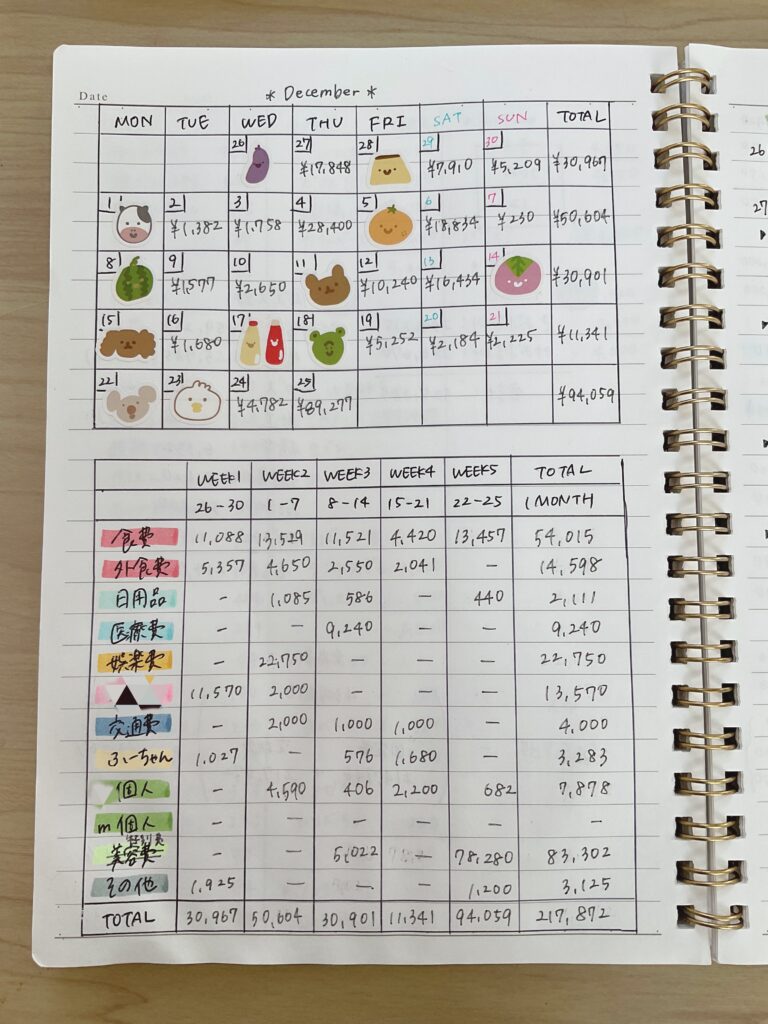 Date
* December *
MON TUE WED THU FRI SAT SUN TOTAL
26 27 28 29 30
¥17,848 ¥7,910 ¥5,209 ¥30,967
1 2 3 4 5 6 7
¥1,382 ¥1,758 ¥28,400 ¥18,834 ¥230 ¥50,604
8 9 10 11 12 13 14
¥1,577 ¥2,650 ¥10,240 ¥16,434 ¥30,901
15 16 17 18 19 20 21
¥1,680 ¥5,252 ¥2,184 ¥2,225 ¥11,341
22 23 24 25
¥4,782 ¥89,277 ¥94,059
WEEK1 WEEK2 WEEK3 WEEK4 WEEK5 TOTAL
26-30 1-7 8-14 15-21 22-25 1 MONTH
食費 11,088 13,529 11,521 4,420 13,457 54,015
外食費 5,357 4,650 2,550 2,041 — 14,598
日用品 - 1,085 586 - 440 2,111
医療費 - — 9,240 — — 9,240
娯楽費 - 22,750 — — — 22,750
11,570 2,000 — — — 13,570
交通費 - 2,000 1,000 1,000 — 4,000
ふーちゃん 1,027 — 576 1,680 — 3,283
個人 - 4,590 406 2,200 682 7,878
m個人 — — — — — —
特別費
美容費 — — 5,022 — 78,280 83,302
その他 1,925 — — — 1,200 3,125
TOTAL 30,967 50,604 30,901 11,341 94,059 217,872
26
27